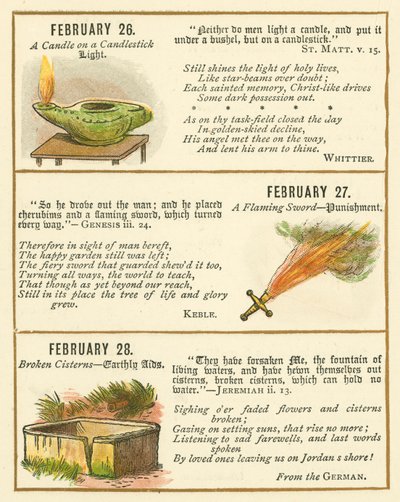 FEBRUARY 26.
A Candle on a Candlestick
Light.
"Neither do men light a candle, and put it
under a bushel, but on a candlestick."
ST. MATT. v. 15.
Still shines the light of holy lives,
Like star-beams over doubt;
Each sainted memory, Christ-like drives
Some dark possession out.
* * * * *
As on thy task-field closed the day
In golden-skied decline,
His angel met thee on the way,
And lent his arm to thine.
WHITTIER.
"So he drove out the man; and he placed
cherubims and a flaming sword, which turned
every way."—GENESIS iii. 24.
Therefore in sight of man bereft,
The happy garden still was left;
The fiery sword that guarded shew'd it too,
Turning all ways, the world to teach,
That though as yet beyond our reach,
Still in its place the tree of life and glory
grew.
KEBLE.
FEBRUARY 27.
A Flaming Sword—Punishment.
FEBRUARY 28.
Broken Cisterns—Earthly Aids.
"They have forsaken Me, the fountain of
living waters, and have hewn themselves out
cisterns, broken cisterns, which can hold no
water."—JEREMIAH ii. 13.
Sighing o'er faded flowers and cisterns
broken;
Gazing on setting suns, that rise no more;
Listening to sad farewells, and last words
spoken
By loved ones leaving us on Jordan s shore!
From the GERMAN.